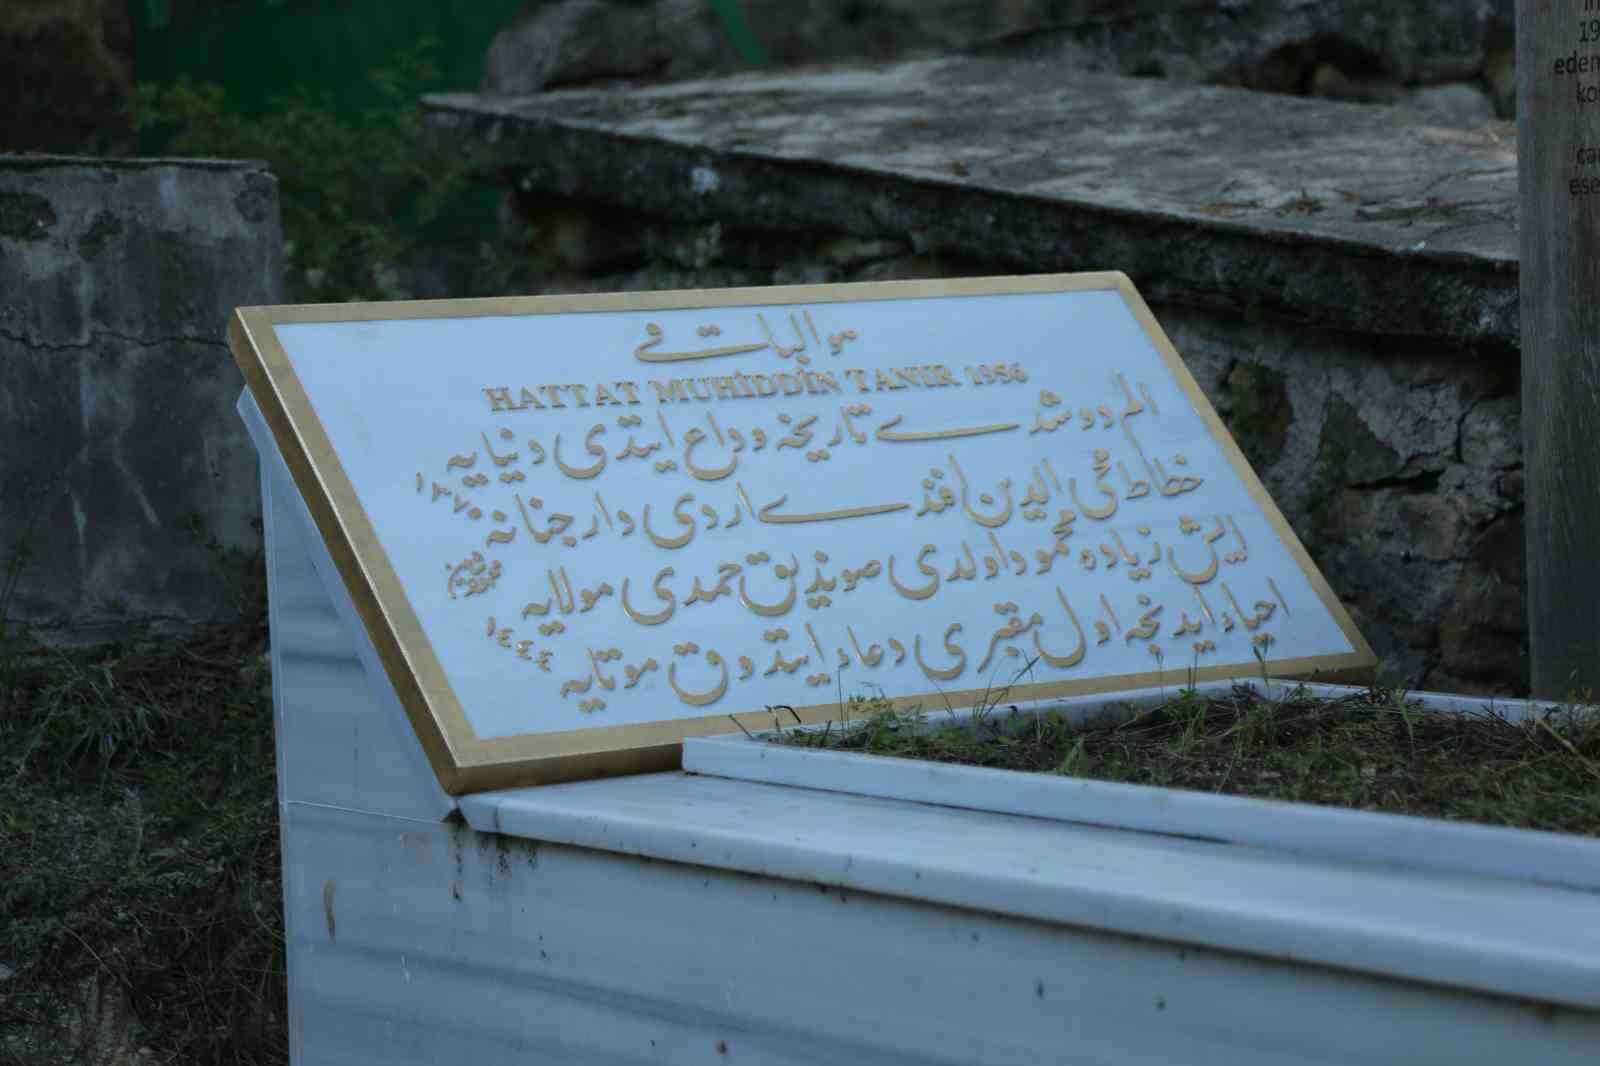 هو الباقی
HATTAT MUHİDDİN TANIR 1956
الم دوشدے تاریخه وداع ایتدی دنیایه
خطاط محی الدین افندے اردی دار جنانه
ایش زیاده محمود اولدی صونده یق حمدی مولایه
احیاء ایدنجه اول مقبری دعاء ایتدوق موتایه
١٨٧٥
محمود شاهین
١٤٤٤
19
eden